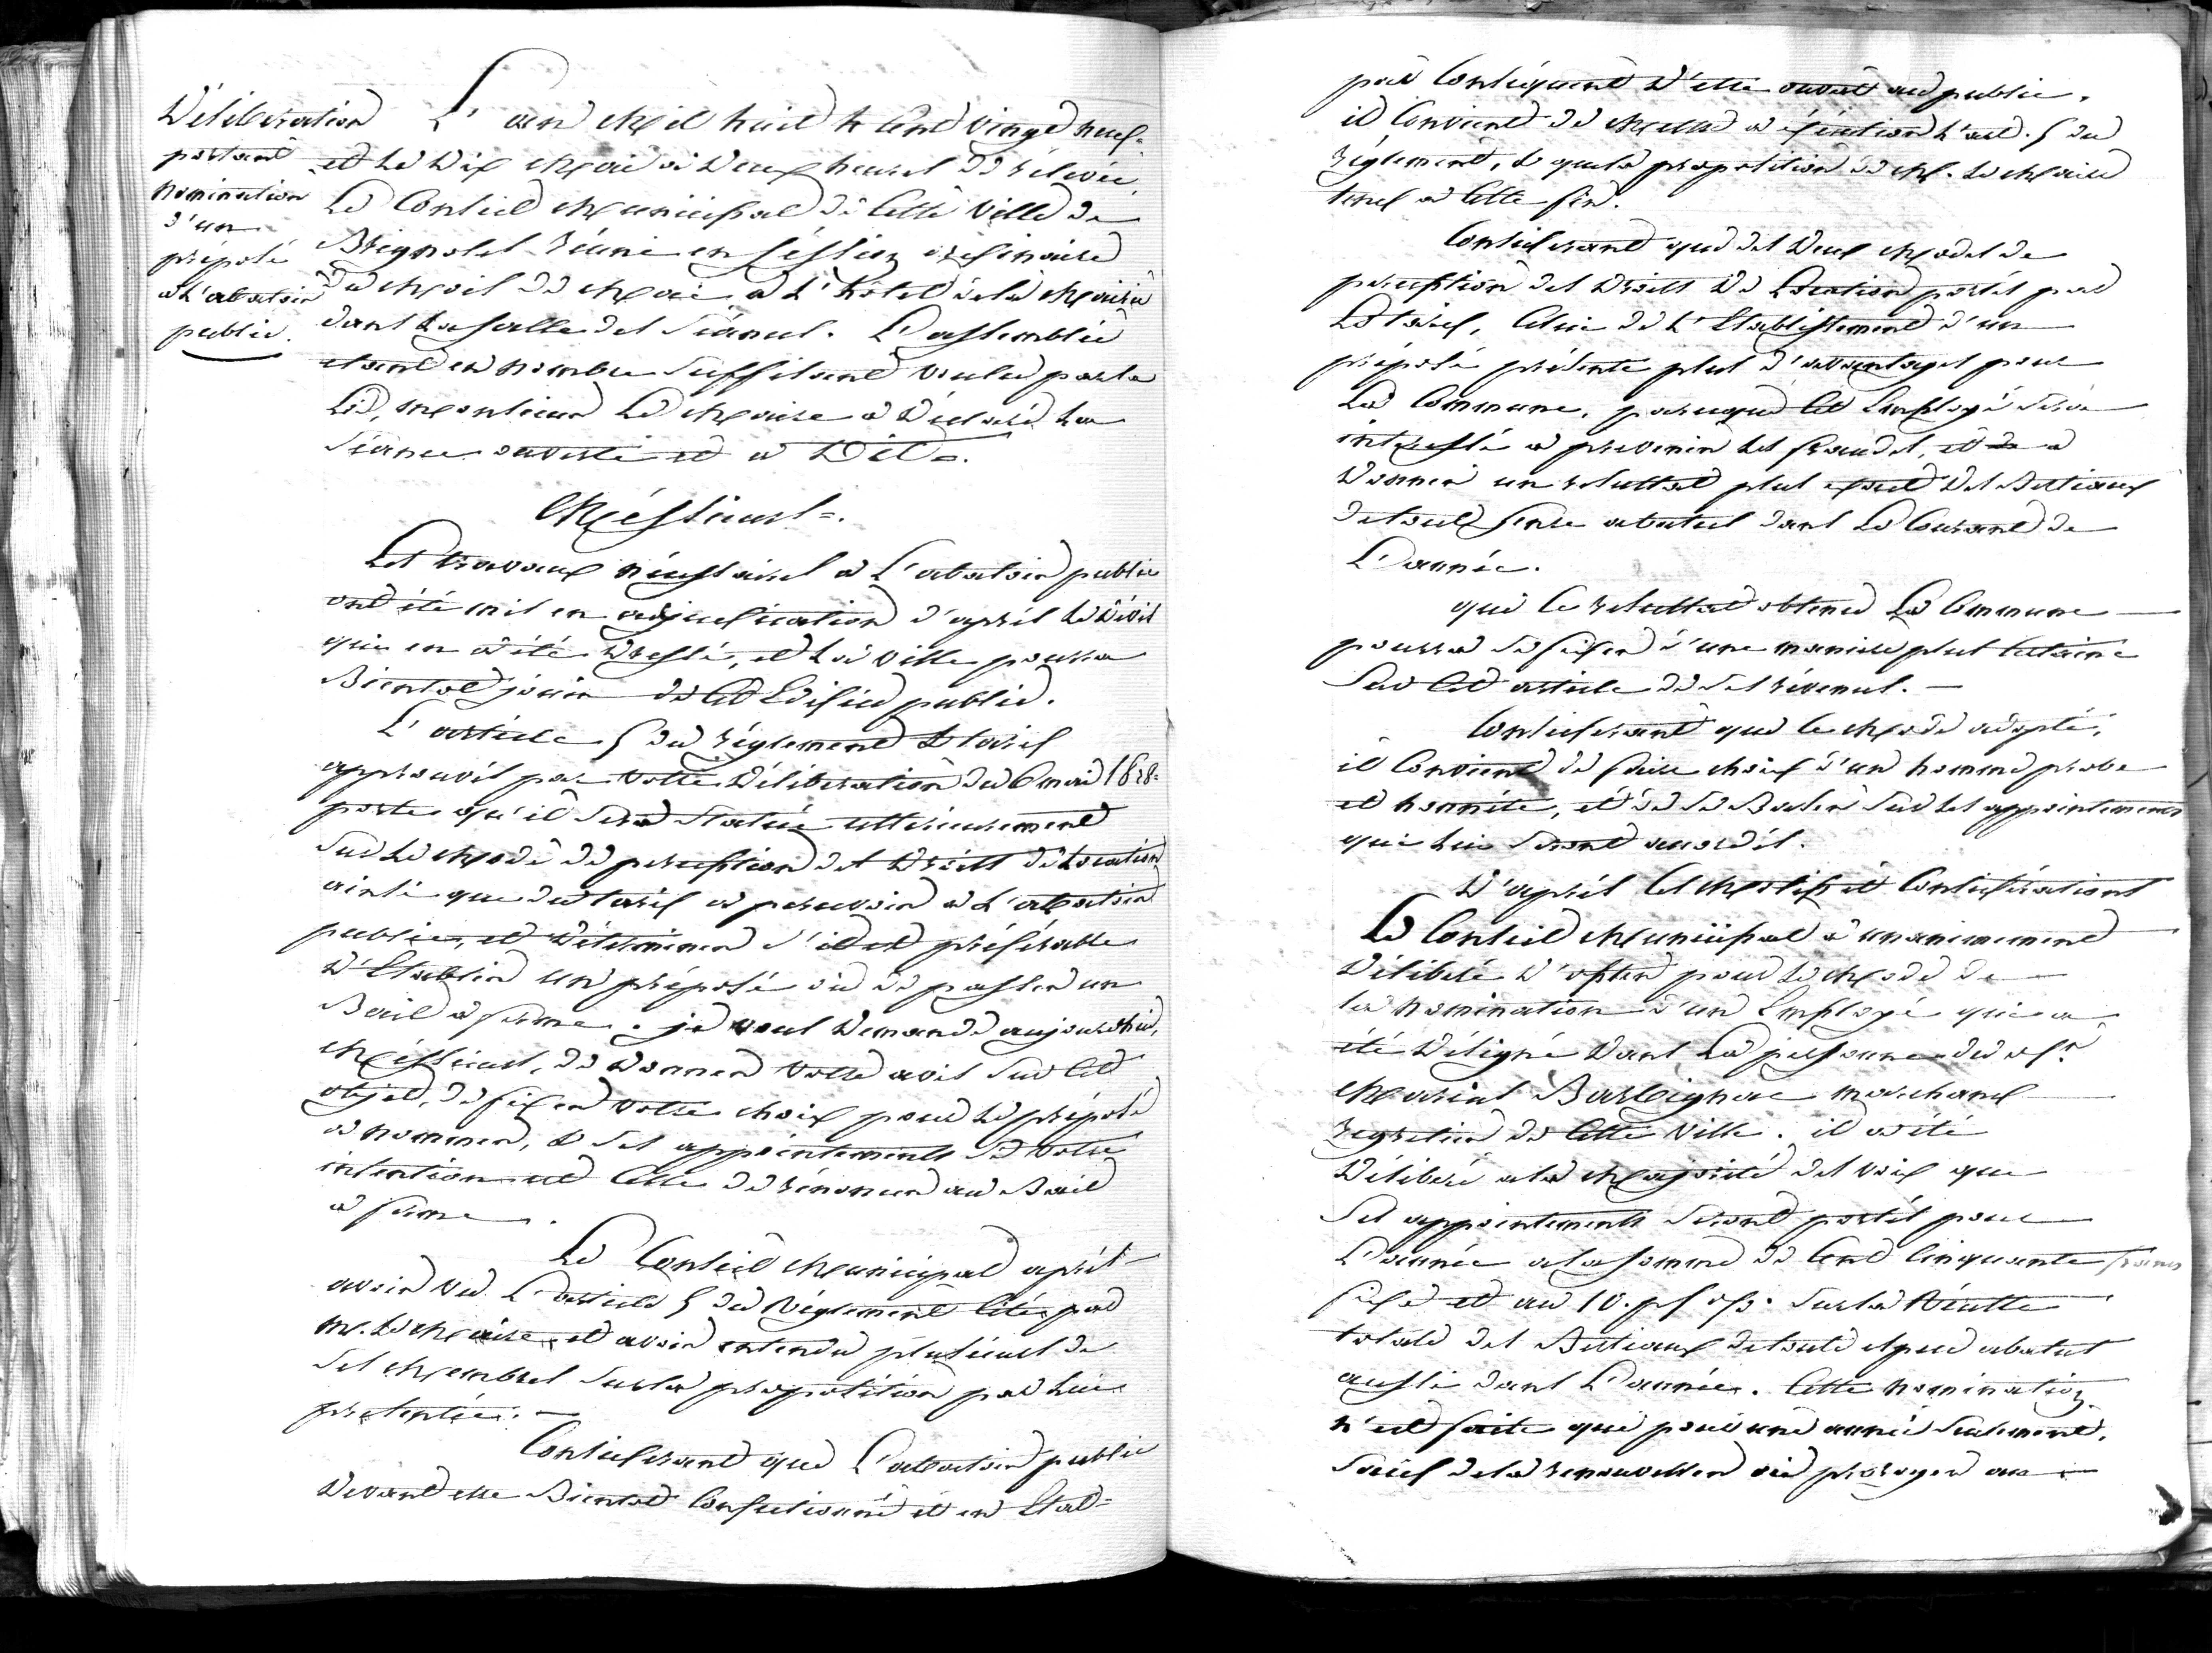 Délibération
portant
nomination
d'un
préposé
à l'abatoir
public.
L'an Mil huit & Cent vingt neuf
et le Dix Mai à Deux heures de rélevée,
Le Conseil Municipal de Cette Ville de
Brignoles Réuni en Séssion ordinaire
du Mois de Mai à l'hôtel de la Mairie
dans la salle des Séances. L'assemblée
étant en nombre Suffisant voulu par la
Loi, Monsieur Le Maire a Déclaré la
Séance ouverte et a Dit.
Méssieurs.
Les travaux nécessaires à L'abatoir public
ont été mis en adjudication d'après le Dévis
qui en a été Dressé, et la Ville pourra
Bientot jouir de Cet Edifice public.
L'article 5 du réglement & tarif
approuvés par votre Délibération du 6 mai 1828
porte qu'il Sera Statué ultérieurement
Sur le Mode de perception des Droits de Location
ainsi que du tarif à percevoir à l'abatoir
public, et Déterminer s'il est préférable
d'Etablir un préposé ou de passer un
Bail à ferme. je vous Demande aujourd'hui,
Méssieurs, de Donner votre avis Sur Cet
objet, de fixer votre choix pour le préposé
à nommer, & Ses appointements si votre
intention est Celle de rénoncer au Bail
à ferme.
Le Conseil Municipal après
avoir vu L'article 5 du Réglement Cité par
M. le Maire, et avoir entendu plusieurs de
Ses Membres Sur la proposition par lui
présentée.
Considérant que L'abatoir public
Devant etre Bientot Confectionné et en Etat
par Conséquent d'etre ouvert au public,
il Convient de Mettre à éxécution l'art. 5 du
réglement, & que la proposition de M. le Maire
tend à Cette fin.
Considérant que des Deux Modes de
perception des Droits de Location portés par
Le tarif, Celui de l'Etablissement d'un
préposé présente plus d'avantages pour
La Commune, parceque Cet Employé Sera
intéressé à prévenir les fraudes, et à
Donner un resultat plus exact des Bestiaux
de tout genre abatus dans Le Courant de
L'année.
que Ce resultat obtenu La Commune
pourra Se fixer d'une manière plus Certaine
Sur Cet article de Ses révenus.
Considérant que Ce Mode adopté,
il Convient de faire choix d'un homme probe
et honnête, et de Se Baser Sur les appointements
qui lui Seront accordés.
D'après Ces Motifs et Considérations
Le Conseil Municipal a unanimement
Délibéré D'opter pour le Mode de
la nomination d'un Employé qui a
été Désigné Dans La personne du Sr.
Marius Barbignac marchand
regretier de Cette Ville. il a été
Délibéré à la Majorité des voix que
Ses appointements Seront portés pour
L'année à la somme de Cent Cinquante francs
fixe et au 10. p% Sur la Récette
totale des Bestiaux de toute espèce abatus
aussi dans L'année. Cette nomination
n'est faite que pour une année Seulement,
Sauf de la renouveller ou proroger au